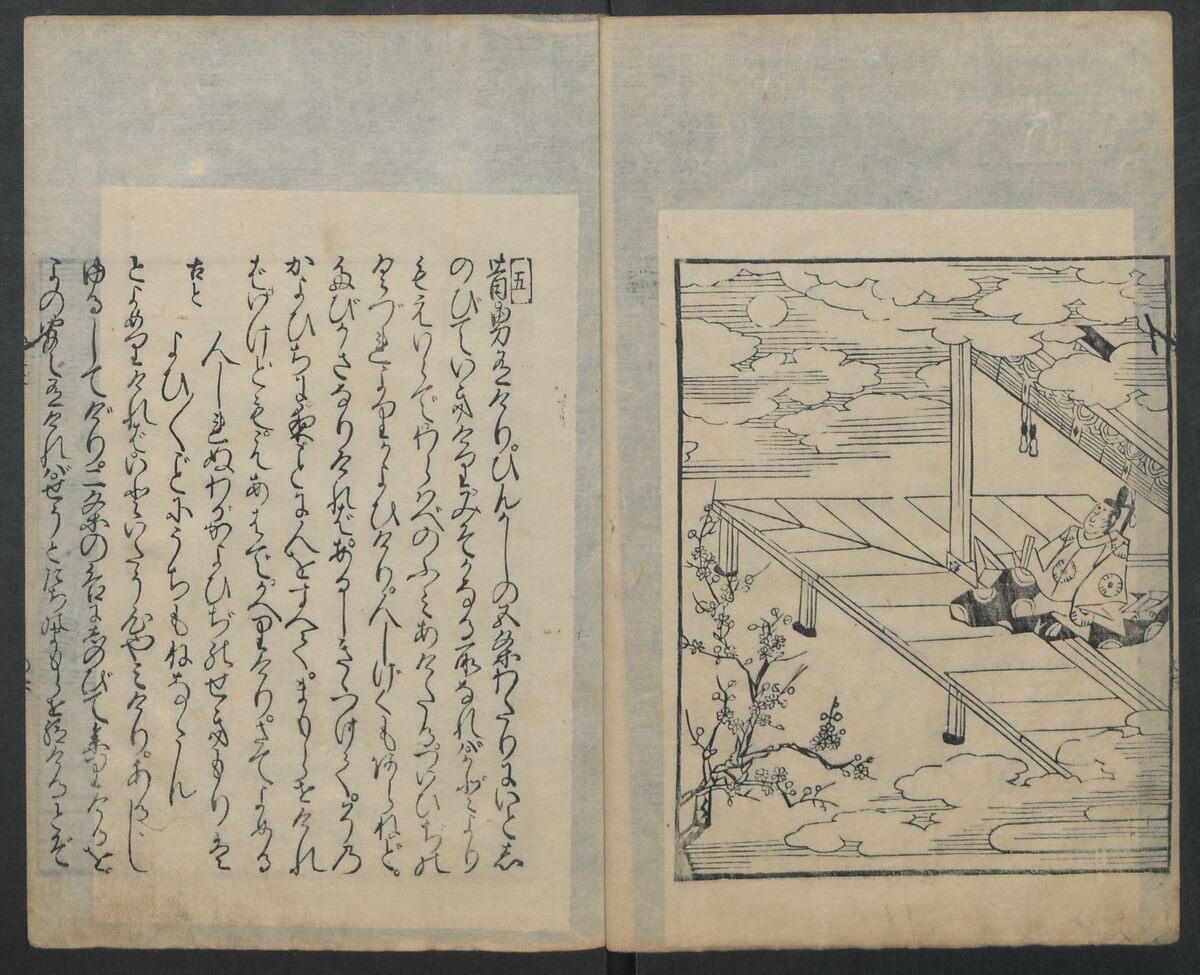 五
昔男有けりひんかしの五条わたりにいとし
のびていきけりみそかなる所なれば、かどより
もえいらでわらべのふみあけたるついひぢの
くづれよりかよひけり。人しげくもあらねど。
たびかさなりければ。あるじきゝつけて。その
かよひぢに。夜ごとに人をすへて。まもらせけれ
ば。いけどもえあはでかへりけり。さてよめる
古今
人しれぬわがかよひぢのせきもりは
よひ〳〵ごとにうちもねなゝん
とよめりければいといたう心やみけり。あるじ
ゆるしてけり。二条の后にしのびて参りけるを。
よの聞え有ければ。せうとたちのまもらせ給ひけるとぞ